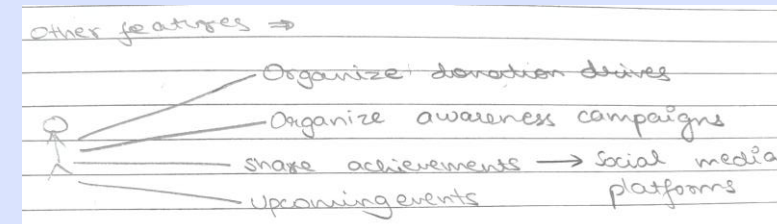 Other features ⇒
Organize donation drives
Organize awareness campaigns
share achievements → Social media
platforms
upcoming events